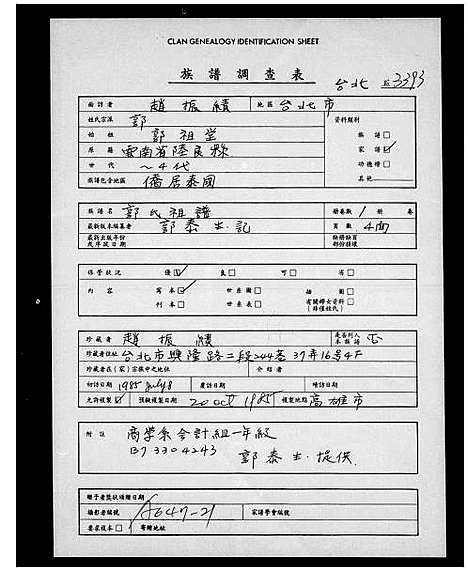 CLAN GENEALOGY IDENTIFICATION SHEET
族譜調查表
台北 3393
面訪者 趙振績 地區 台北市
姓氏宗派 郭 資料類別
始祖 郭祖堂 族譜□
原籍 雲南省陸良縣 家譜☑
世代 ~4代 功德簿□
族譜包含地區 僑居泰國 其他
族譜名 郭氏祖譜 冊卷數 1 冊 卷
最新版本編纂者 郭泰生記 頁數 4面
最新出版年份及序跋日期 缺冊缺頁部份損壞
保管狀況 優☑ 良□ 可□ 劣□
內容 寫本☑ 世系圖□ 插圖□
刊本□ 世系表□ 有關婦女資料□(路僅姓氏)
珍藏者 趙振績 是否列入本族譜 否
珍藏者住址 台北市興隆路二段244巷37弄16号4F
珍藏者在(家)宗族中之地位 介紹者
初訪日期 1985 July 8 覆訪日期 續訪日期
允許複製☑ 預擬複製日期 20 oct 1985 複製地點 高雄市
附註 商學系會計組一年級
B73304243 郭泰生提供.
贈予者獎狀頒贈日期
攝影者編號 A647-21 家譜學會編號
要求複本□ 寄贈地址